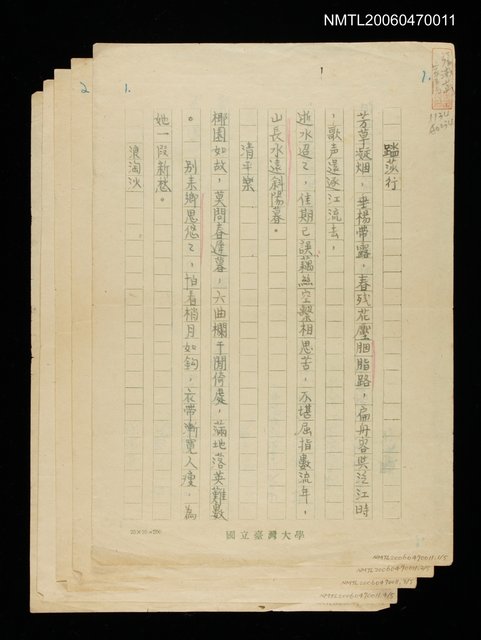 NMTL20060470011
1.
1
2
1.
踏莎行
芳草凝烟，垂楊帶露，春残花壓胭脂路，扁舟容與泛江時
，歌声還逐江流去，
逝水迢〻，佳期已誤，藕絲空繫相思苦，不堪屈指數流年，
山長水遠斜陽暮。
清平樂
椰園如故，莫問春遲暮，六曲欄干閒倚處，滿地落英難數
。 别来鄉思悠〻，怕看梢月如鈎，衣帶漸寛人瘦，為
她一段新愁。
浪淘沙
國立臺灣大學
NMTL20060470011.1/5
NMTL20060470011.2/5
NMTL20060470011.4/5